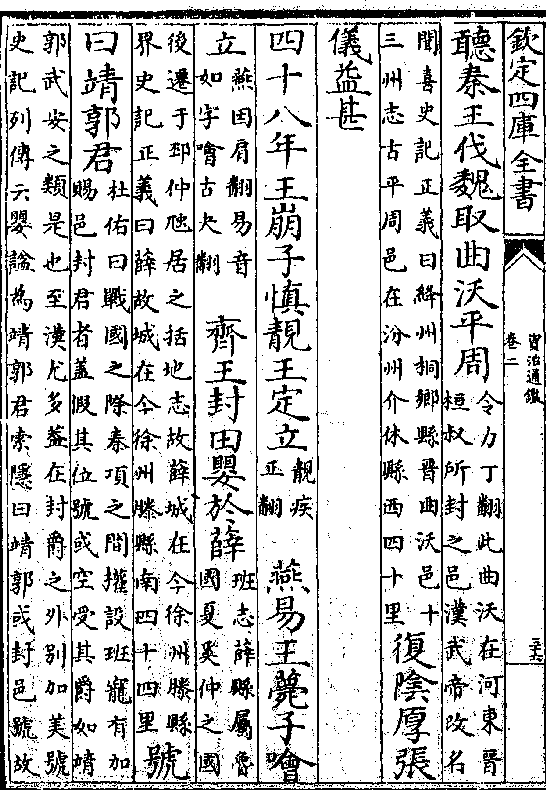 欽定四庫全書
資治通鑑
卷二
聽秦王伐魏取曲沃平周
令力丁翻此曲沃在河東晉
桓叔所封之邑漢武帝改名
聞喜史記正義曰絳州桐鄉縣晉曲沃邑十
三州志古平周邑在汾州介休縣西四十里
復陰厚張
儀益甚
四十八年王崩子慎靚王定立
靚疾
正翻
燕易王薨子噲
立
燕因肩翻易音
如字噲古夬翻
齊王封田嬰於薛
班志薛縣屬魯
國夏奚仲之國
後遷于邳仲虺居之括地志故薛城在今徐州滕縣
界史記正義曰薛故城在今徐州滕縣南四十四里
號
曰靖郭君
杜佑曰戰國之際秦項之間權設班寵有加
賜邑封君者蓋假其位號或空受其爵如靖
郭武安之類是也至漢尤多蓋在封爵之外別加美號
史記列傳云嬰諡為靖郭君索隱曰靖郭或封邑號故